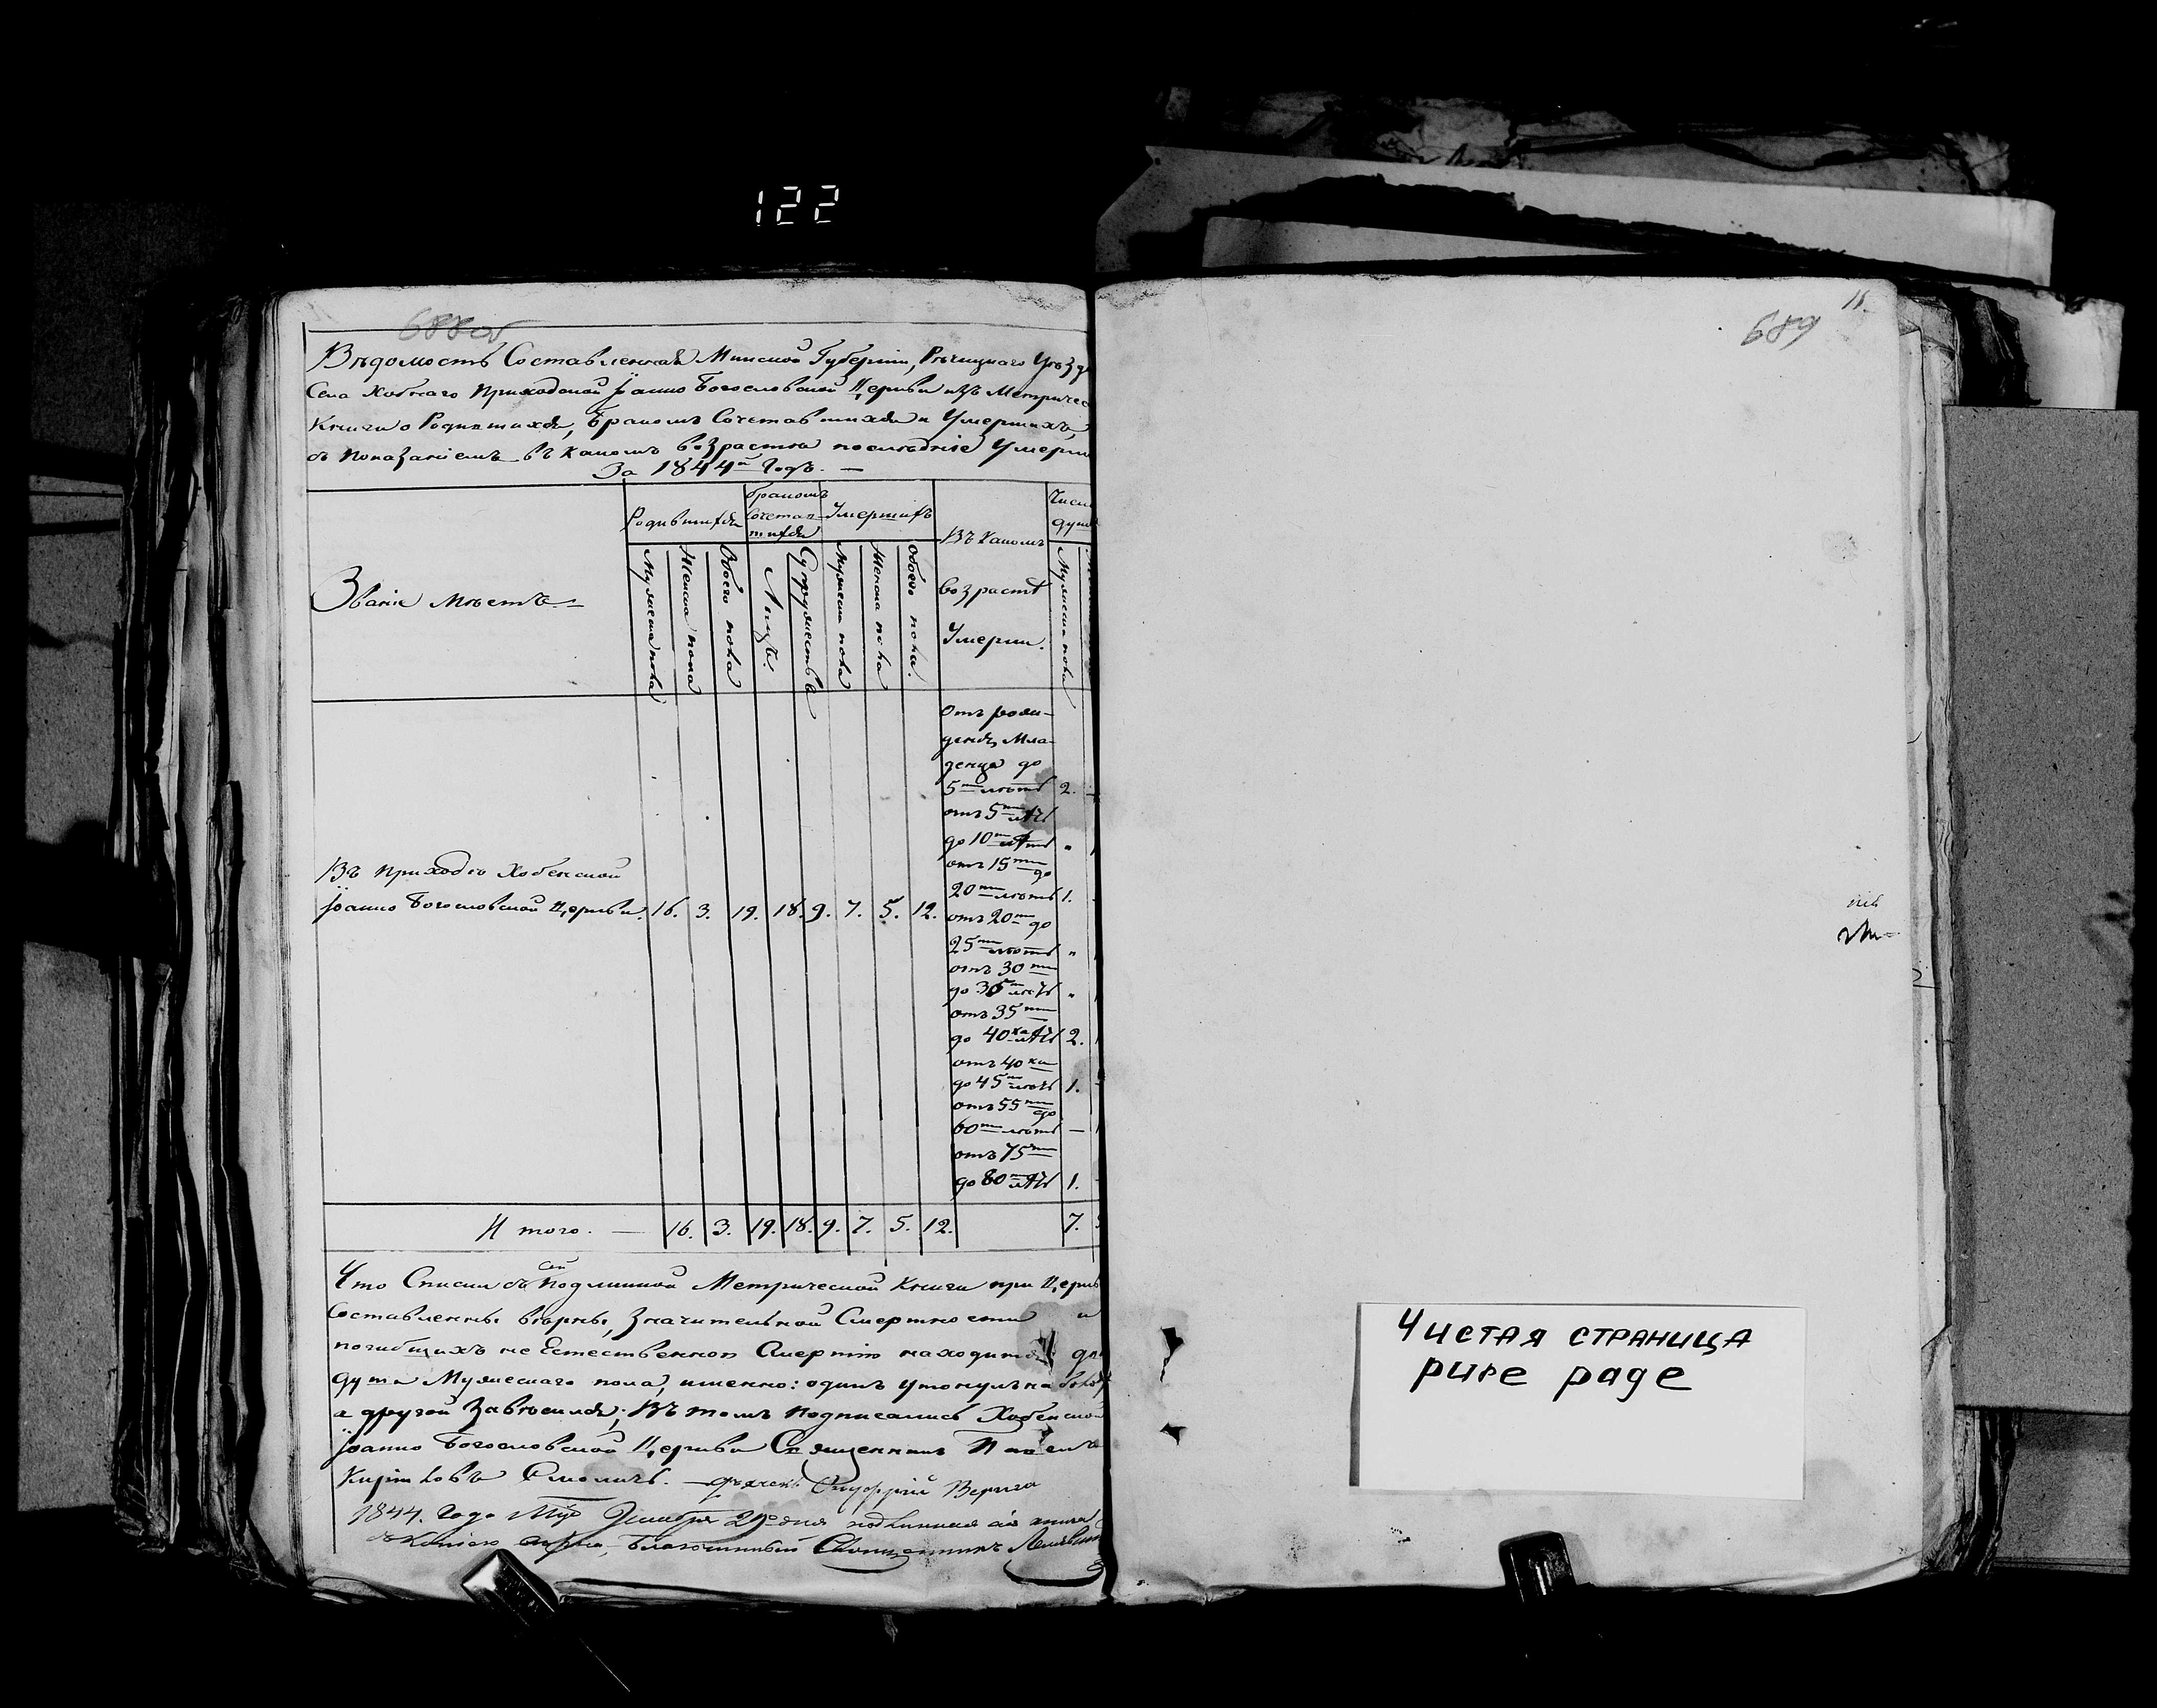 122
688об
Вѣдомость Составленная Минской Губерніи, Рѣчицкаго Уѣзда
Села Хобнаго Приходской Іоанно Богословской Церкви изъ Метричес
Книги о Родившихся, Бракомъ Сочетавшихся и Умершихъ,
съ Показаніемъ въ Какомъ возрастѣ послѣдніе Умерли
За 1844й Годъ. —
Званіе Мѣстъ
Родившихся
бракомъ Сочетавшихся
Умершихъ
Въ Какомъ возрастѣ Умерли.
Число душъ
Мужеска пола
Женска пола
Обоего пола
Лицъ.
Супружествъ
Мужеска пола
Женска пола
Обоего пола.
Мужеска пола
Въ Приходѣ Хобенской
Іоанно Богословской Церкви. 16. 3. 19. 18. 9. 7. 5. 12.
Отъ рож-
денія Мла-
денца до
5ти лѣтъ 2.
отъ 5ти лѣтъ
до 10ти лѣтъ "
отъ 15ти до
20ти лѣтъ 1.
отъ 20ти до
25ти лѣтъ "
отъ 30ти
до 35ти лѣтъ "
отъ 35ти
до 40ка лѣтъ 2.
отъ 40ка
до 45ти лѣтъ 1.
отъ 55ти до
60ти лѣтъ —
отъ 75ти
до 80ти лѣтъ 1.
И того. — 16. 3. 19. 18. 9. 7. 5. 12. 7.
Что Списки съ сей Подлинной Метрической Книги при Церкв
Составленны вѣрны, Значительной Смертности и
погибшихъ не Естественною Смертію находится
душа Мужескаго пола, именно: одинъ утонулъ на
а другой Завѣсился; Въ томъ Подписались Хобенской
Іоанно Богословской Церкви Священникъ
Смоличъ. — дьячекъ Онуфрій Верига
1844. Года Мца Декабря дня подлинная сія книга
съ Копіею Благочинный Священникъ
18.
689
Чистая страница
pure page